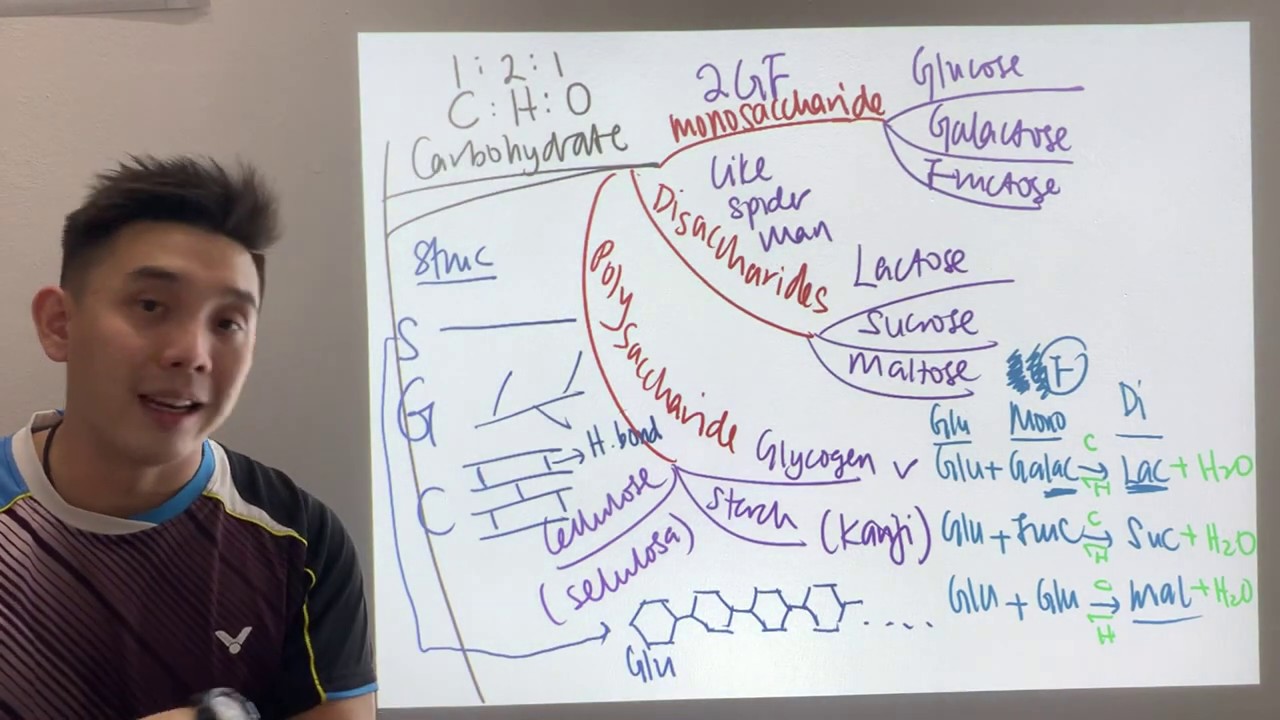 1:2:1
C:H:O
Carbohydrate
2GF
monosaccharide
Glucose
Galactose
Fructose
like
spider
man
Disaccharides
Lactose
Sucrose
Maltose
Polysaccharide
Glycogen ✓
Starch (Kanji)
Cellulose
(selulosa)
Struc
S
G
C
→ H. bond
F
Glu Mono Di
Glu + Galac C ⇌ H Lac + H₂O
Glu + Fruc C ⇌ H Suc + H₂O
Glu + Glu C ⇌ H Mal + H₂O
Glu